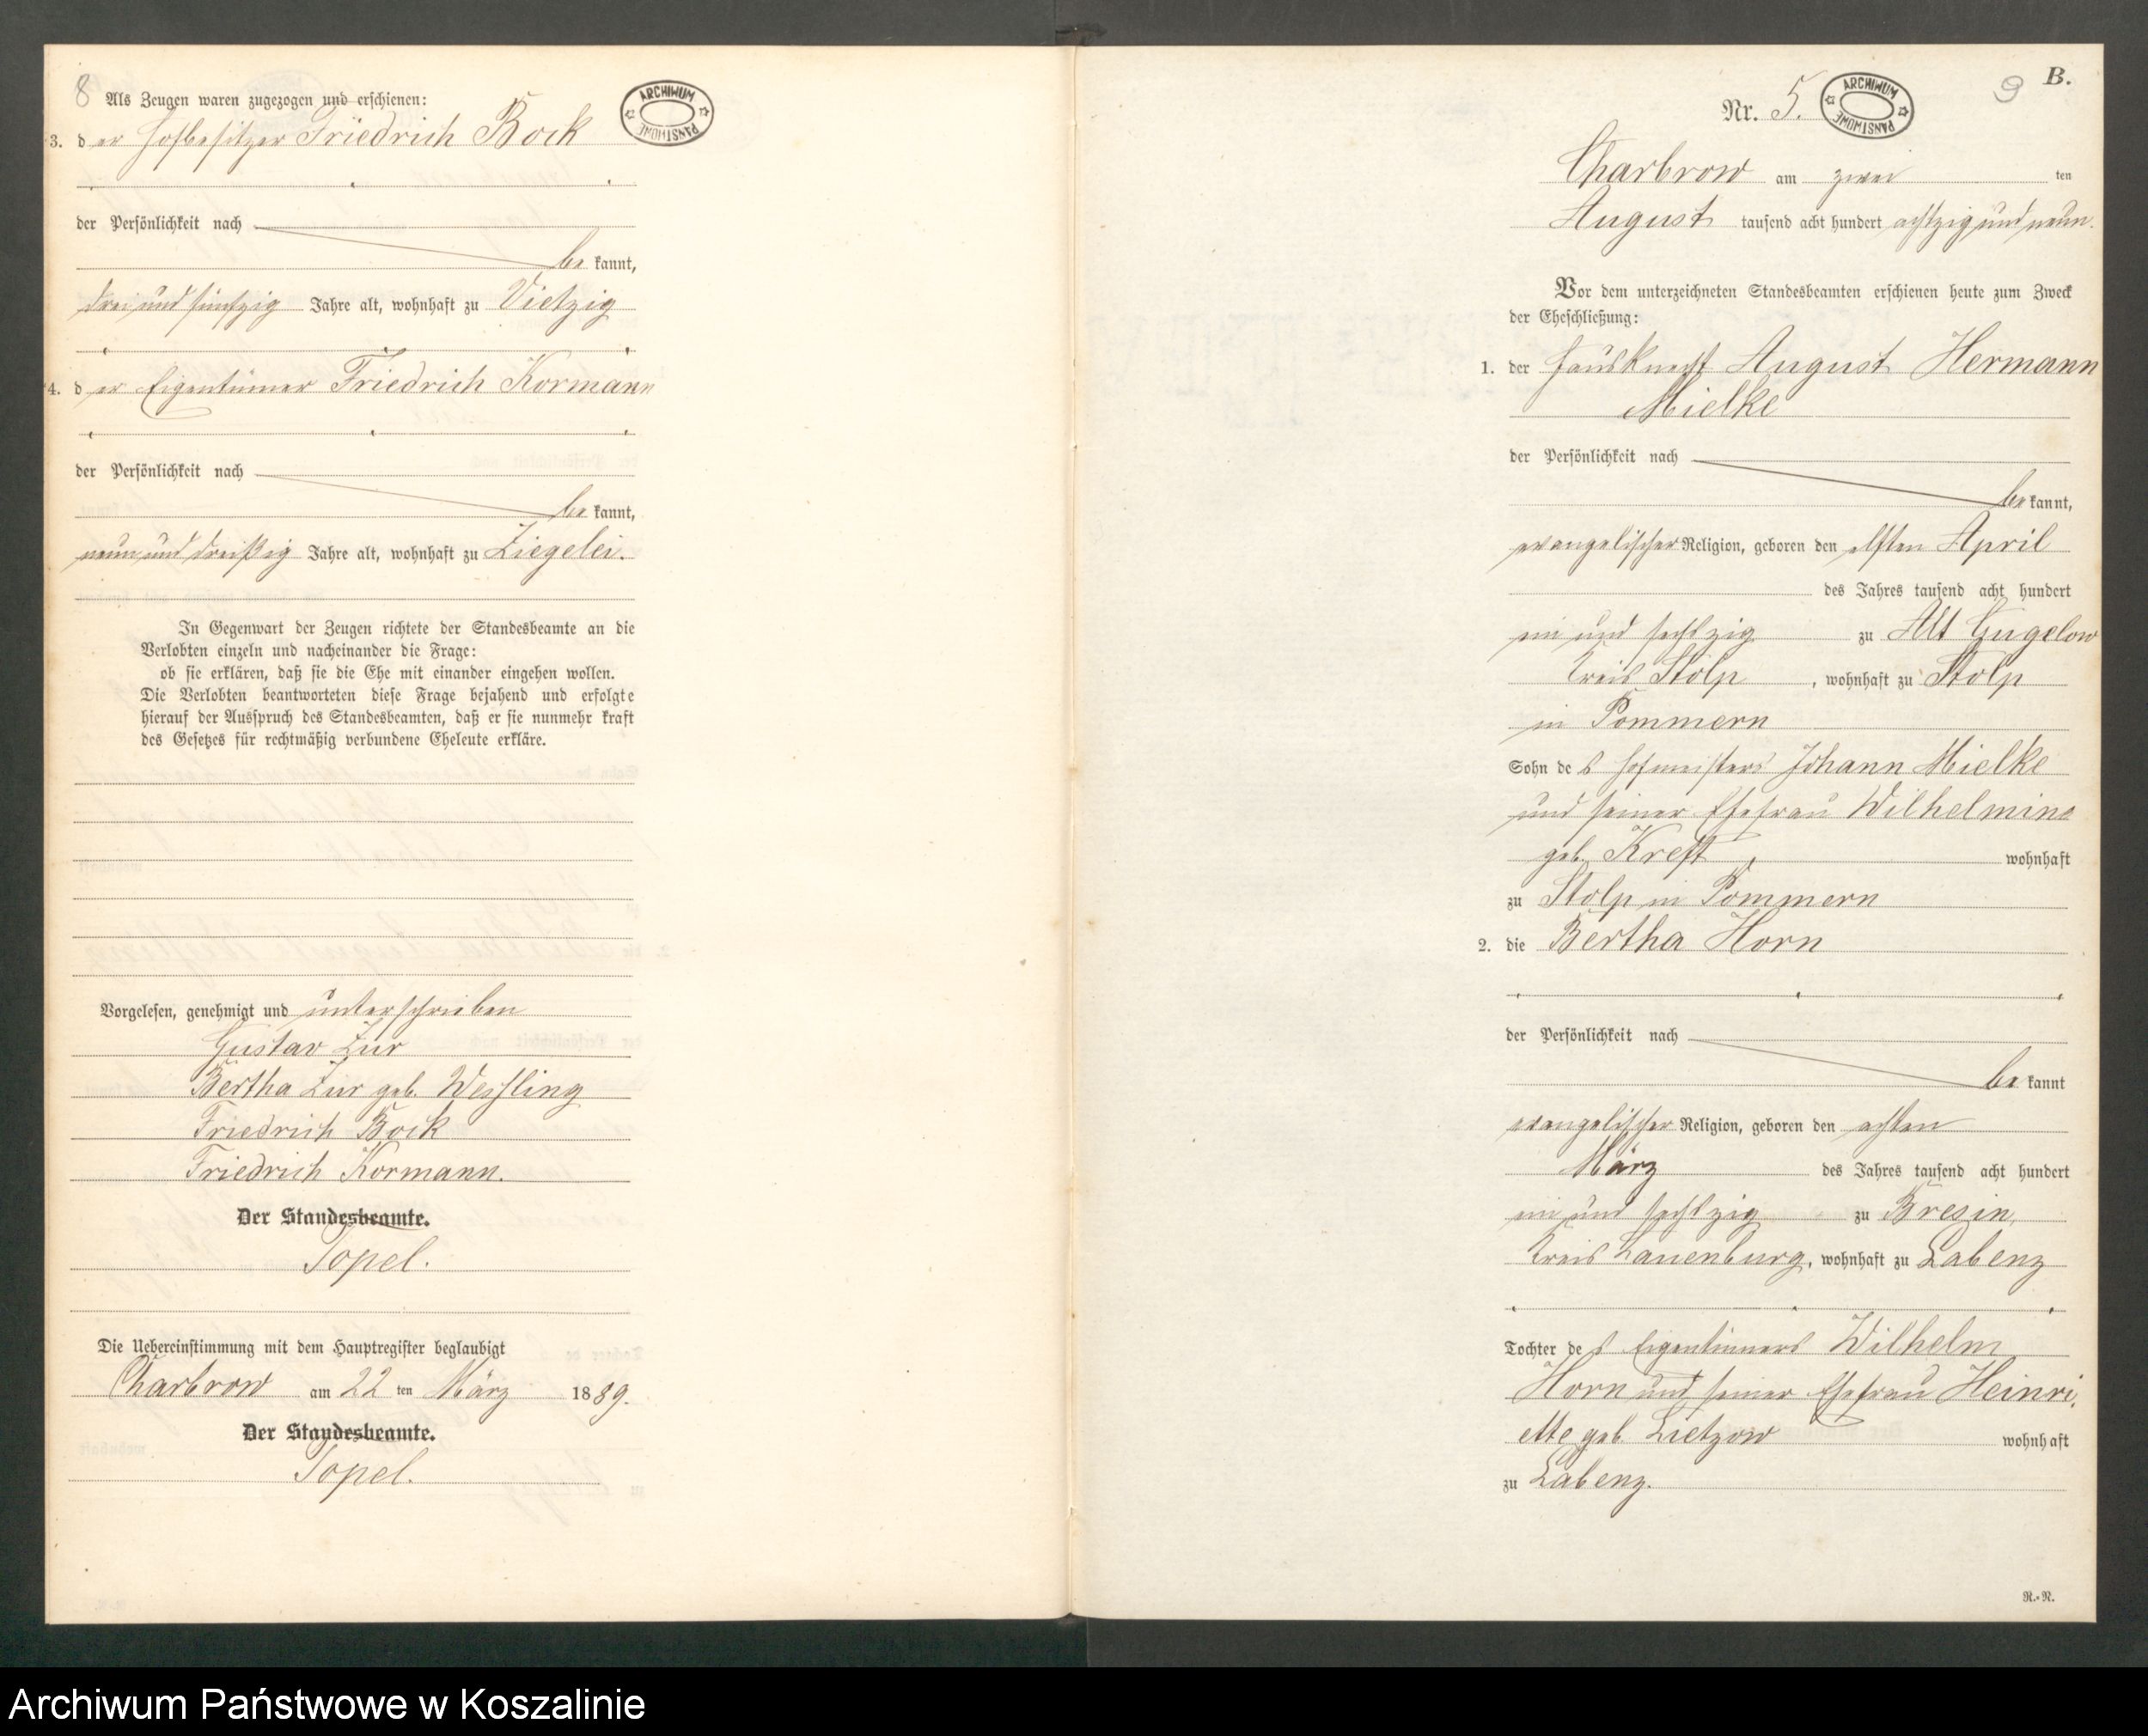 8
ARCHIWUM PAŃSTWOWE
Als Zeugen waren zugezogen und erschienen:
3. der Hofbesitzer Friedrich Bock
der Persönlichkeit nach
bekannt,
drei und fünfzig Jahre alt, wohnhaft zu Vietzig
4. der Eigentümer Friedrich Kormann
der Persönlichkeit nach
bekannt,
neun und dreißig Jahre alt, wohnhaft zu Ziegelei.
In Gegenwart der Zeugen richtete der Standesbeamte an die
Verlobten einzeln und nacheinander die Frage:
ob sie erklären, daß sie die Ehe mit einander eingehen wollen.
Die Verlobten beantworteten diese Frage bejahend und erfolgte
hierauf der Ausspruch des Standesbeamten, daß er sie nunmehr kraft
des Gesetzes für rechtmäßig verbundene Eheleute erkläre.
Vorgelesen, genehmigt und unterschrieben
Gustav Zur
Bertha Zur geb. Wessling
Friedrich Bock
Friedrich Kormann.
Der Standesbeamte.
Topel.
Die Uebereinstimmung mit dem Hauptregister beglaubigt
Charbrow am 22 ten März 1889.
Der Standesbeamte.
Topel.
B.
9
Nr. 5.
ARCHIWUM PAŃSTWOWE
Charbrow am zwei ten
August tausend acht hundert achtzig und neun.
Vor dem unterzeichneten Standesbeamten erschienen heute zum Zweck
der Eheschließung:
1. der Hausknecht August Hermann
Mielke
der Persönlichkeit nach
bekannt,
evangelischer Religion, geboren den elften April
des Jahres tausend acht hundert
ein und sechszig zu Alt Gugelow
Kreis Stolp, wohnhaft zu Stolp
in Pommern
Sohn des Hofmeisters Johann Mielke
und seiner Ehefrau Wilhelmine
geb. Kreft, wohnhaft
zu Stolp in Pommern
2. die Bertha Horn
der Persönlichkeit nach
bekannt
evangelischer Religion, geboren den achten
März des Jahres tausend acht hundert
ein und sechszig zu Bresin,
Kreis Lauenburg, wohnhaft zu Labenz
Tochter des Eigentümers Wilhelm
Horn und seiner Ehefrau Heinri,
ette geb. Lietzow wohnhaft
zu Labenz.
R.-R.
Archiwum Państwowe w Koszalinie